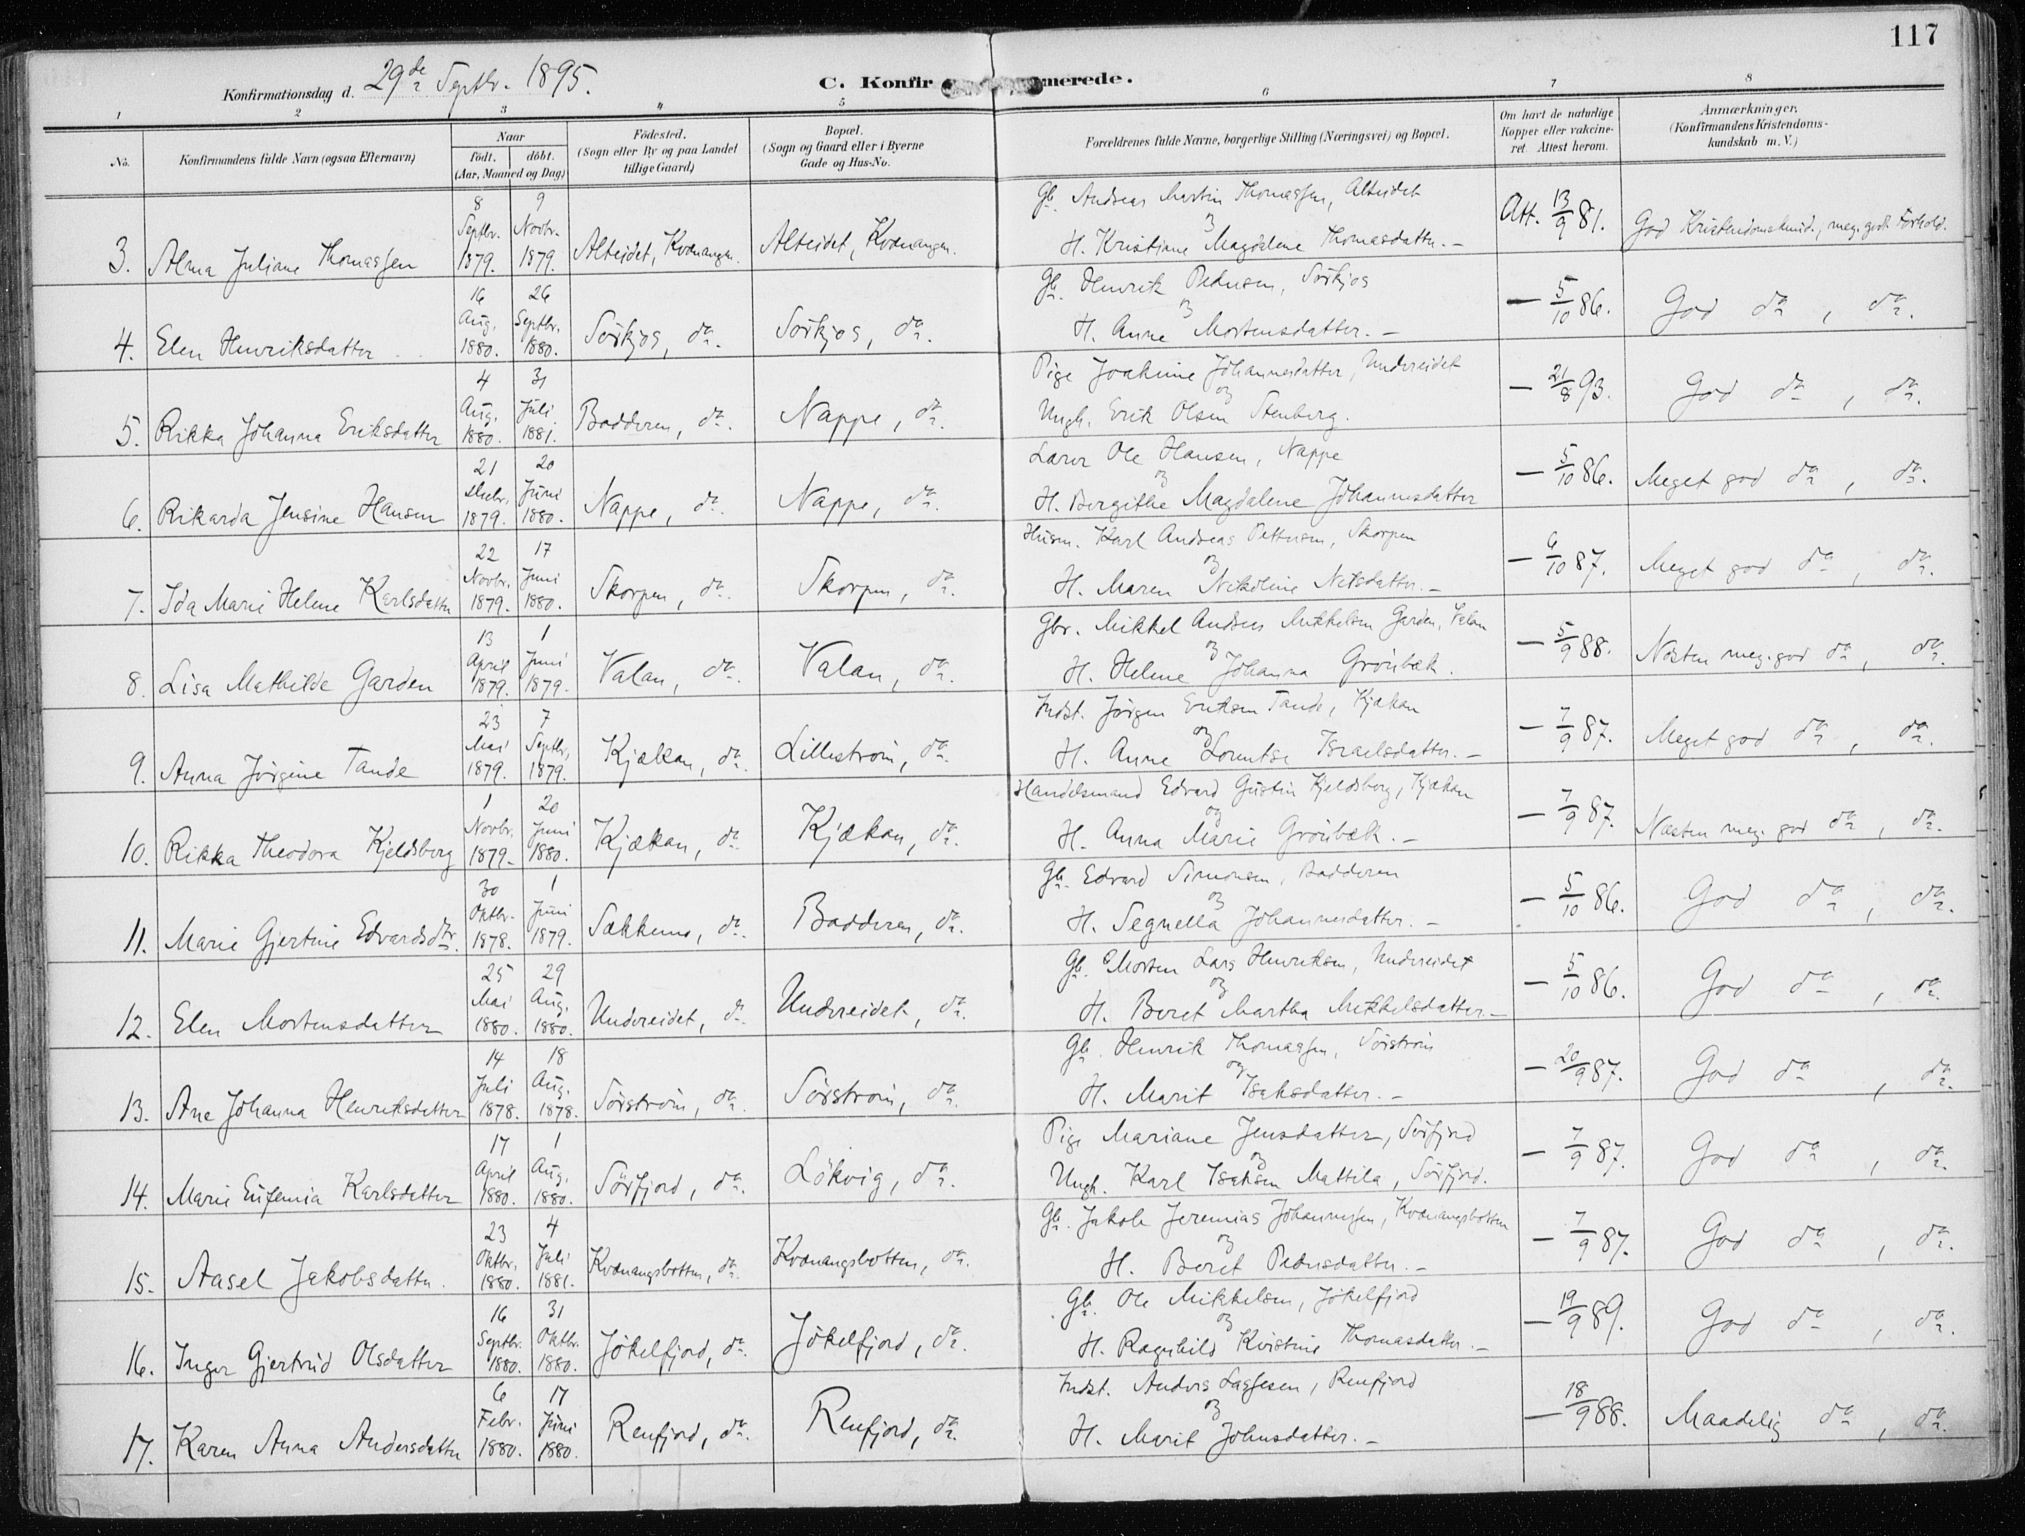 117
Konfirmationsdag d. 29de Septbr. 1895.
C. Konfir merede.
1 2 3 4 5 6 7 8
No.
Konfirmandens fulde Navn (ogsaa Efternavn)
Naar
födt. döbt.
(Aar, Maaned og Dag)
Födested.
(Sogn eller By og paa Landet
tillige Gaard)
Bopæl.
(Sogn og Gaard eller i Byerne
Gade og Hus-No.
Forældrenes fulde Navne, borgerlige Stilling (Næringsvei) og Bopæl.
Om havt de naturlige
Kopper eller vakcine-
ret. Attest herom.
Anmærkninger.
(Konfirmandens Kristendoms-
kundskab m. V.)
8 9 Gb. Andreas Martin Thomassen, Alteidet
Septbr. Novbr. og
3. Alma Juliane Thomassen 1879. 1879. Alteidet, Kvænangen. Alteidet, Kvænangen. H. Kristiane Magdalene Thomasdatter. – Att. 13/9 81. God Kristendomskund., meg. godt Forhold.
16 26 Gb. Henrik Pedersen, Sörkjos
Aug. Septbr. og
4. Elen Henriksdatter 1880. 1880. Sörkjos, do. Sörkjos, do. H. Anne Mortensdatter. – — 5/10 86. God do, do.
4 31 Pige Joakime Johannesdatter, Undereidet
Aug. Juli og
5. Rikka Johanna Eriksdatter 1880. 1881. Badderen, do. Nappe, do. Ungk. Erik Olsen Stenberg. — 21/8 93. God do, do.
21 20 Ole Hansen, Nappe
Decbr. Juni og
6. Rikarda Jensine Hansen 1879. 1880. Nappe, do. Nappe, do. H. Bergithe Magdalene Johannesdatter — 5/10 86. Meget god do, do.
22 17 Husm. Karl Andreas Pettersen, Skorpen
Novbr. Juni og
7. Ida Marie Helene Karlsdatter 1879. 1880. Skorpen, do. Skorpen, do. H. Maren Nikoline Nilsdatter. – — 6/10 87. Meget god do, do.
13 1 Gbr. Mikkel Andreas Mikkelsen Garden, Valan
April Juni og
8. Lisa Mathilde Garden 1879. 1879. Valan, do. Valan, do. H. Helene Johanna Grönbæk. — 5/9 88. Næsten meg. god do, do.
23 7 Indst. Jörgen Eriksen Tande, Kjækan
Mai Septbr. og
9. Anna Jörgine Tande 1879. 1879. Kjækan, do. Lilleström, do. H. Anne Lorentse Israelsdatter. – — 7/9 87. Meget god do, do.
1 20 Handelsmand Edvard Gustin Kjeldsberg, Kjækan
Novbr. Juni og
10. Rikka Theodora Kjeldsberg 1879. 1880. Kjækan, do. Kjækan, do. H. Anna Marie Grönbæk. – — 7/9 87. Næsten meg. god do, do.
30 1 Gb. Edvard Simonsen, Badderen
Oktbr. Juni og
11. Marie Gjertine Edvardsdtr. 1878. 1879. Sækkemo, do. Badderen, do. H. Segnella Johannesdatter. – — 5/10 86. God do, do.
25 29 Gb. Morten Lars Henriksen, Undereidet
Mai Aug. og
12. Elen Mortensdatter 1880. 1880. Undereidet, do. Undereidet, do. H. Beret Martha Mikkelsdatter – — 5/10 86. God do, do.
14 18 Gb. Henrik Thomassen, Sörström
Juli Aug. og
13. Ane Johanna Henriksdatter 1878. 1878. Sörström, do. Sörström, do. H. Marit Isaksdatter. – — 20/9 87. God do, do.
17 1 Pige Mariane Jensdatter, Sörfjord
April Aug. og
14. Marie Eufemia Karlsdatter 1880. 1880. Sörfjord, do. Lökvig, do. Ungk. Karl Isaksen Mattila, Sörfjord. — 7/9 87. God do, do.
23 4 Gb. Jakob Jeremias Johannesen, Kvænangsbotten
Oktbr. Juli og
15. Aasel Jakobsdatter. 1880. 1881. Kvænangsbotten, do. Kvænangsbotten, do. H. Beret Pedersdatter. – — 7/9 87. God do, do.
16 31 Gb. Ole Mikkelsen, Jökelfjord
Septbr. Oktbr. og
16. Inger Gjertrud Olsdatter 1880. 1880. Jökelfjord, do. Jökelfjord, do. H. Ragnhild Kristine Thomasdatter. – — 19/9 89. God do, do.
6 17 Indst. Anders Lassesen, Renfjord
Febr. Juni og
17. Karen Anna Andersdatter 1880. 1880. Renfjord, do. Renfjord, do. H. Marit Johnsdatter. – — 18/9 88. Maadelig do, do.